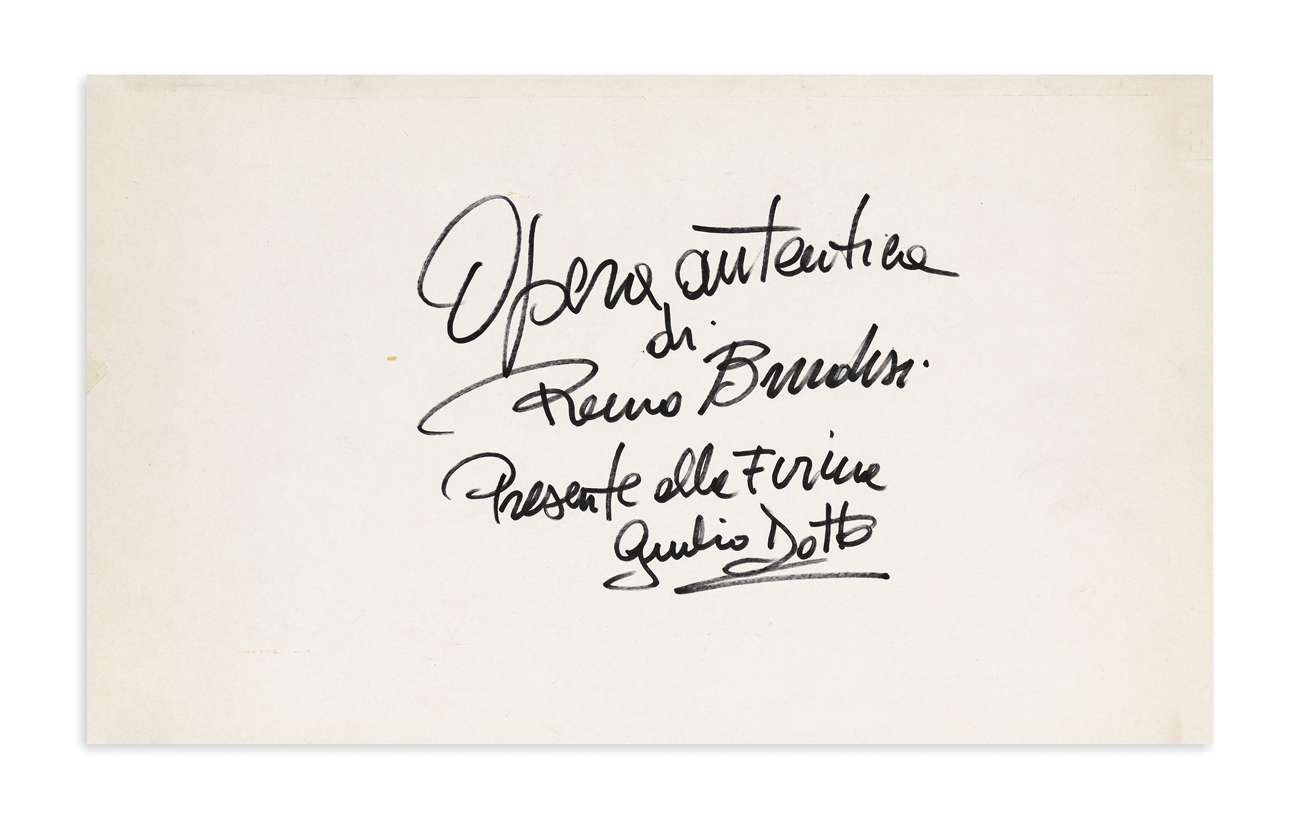 Opera autentica
di
Remo Brindisi.
Presente alla Firma
Giulio Dotto